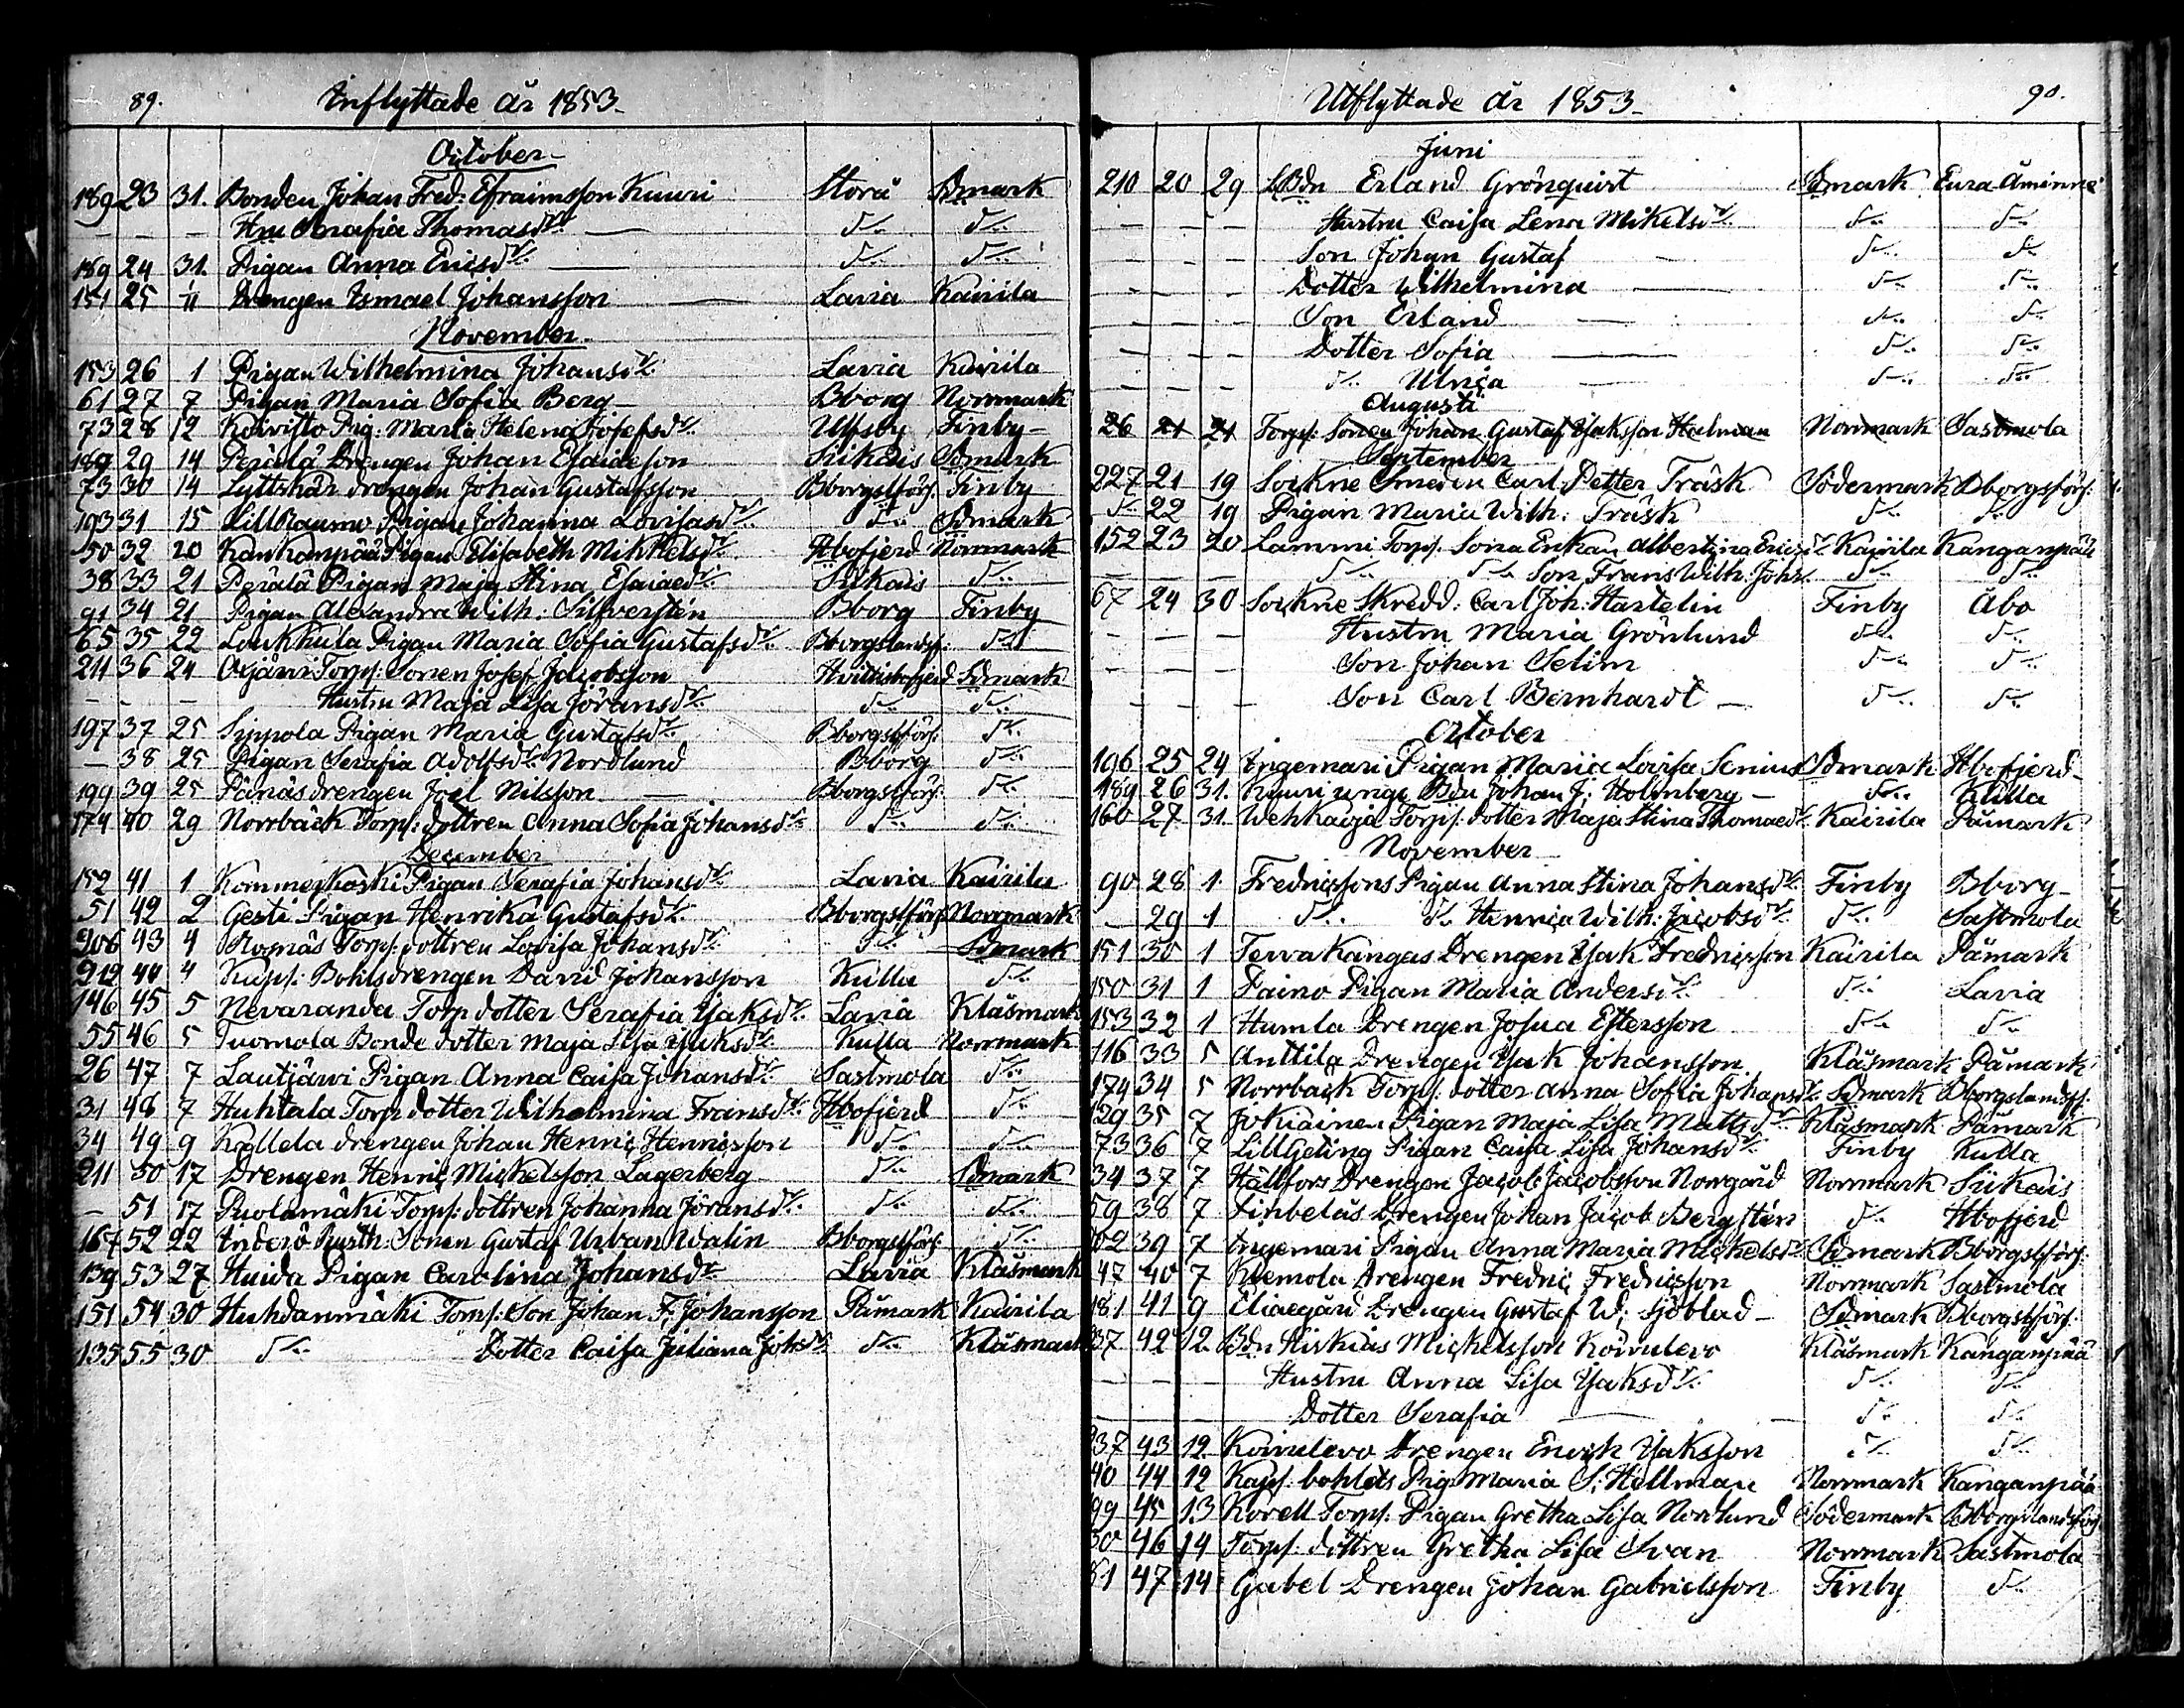 89. Inflyttade år 1853
October
189 23 31. Bonden Johan Fred: Efraimsson Kuuri Storå Sdmark
— — — Hru Serafia Thomasdr — dr dr
189 24 31. Pigan Anna Ericsdr — dr dr
151 25 11 Drengen Ismael Johansson — Lavia Kairila
November
153 26 1 Pigan Wilhelmina Johansdr Lavia Kairila
61 27 7 Pigan Maria Sofia Berg — Bborg Norrmark
73 28 12 Koivisto Pig: Maria Helena Josefsdr Ulfsby Finby —
189 29 14 Perälä Drengen Johan Esaiaeson Siikais Sdmark
73 30 14 Lyttskär drengen Johan Gustafsson Bborgslförs: Finby
193 31 15 LillRaumo Pigan Johanna Lovisasdr dr Sdmark
50 32 20 Kankanpää Pigan Elisabeth Mikkelsdr Hbofjerd Norrmark
38 33 21 Perälä Pigan Maja Stina Esaiaedr Siikais dr
91 34 21 Pigan Alexandra Wilh: Silfverstén Bborg Finby
65 35 22 Loukkula Pigan Maria Sofia Gustafsdr Bborgslandsf: dr
211 36 24 Torp: Sonen Josef Jacobsson Hvittisbofjerd Sdmark
— — — Hustru Maja Lisa Göransdr dr dr
197 37 25 Sippola Pigan Maria Gustafsdr Bborgslförs: dr
— 38 25 Pigan Serafia Adolfsdr Nordlund Bborg dr
199 39 25 Pånäs drengen Joel Nilsson — Bborgslförs: dr
174 40 29 Norrbäck Torps: dottren Anna Sofia Johansdr dr dr
December
152 41 1 Kommerkoski Pigan Serafia Johansdr Lavia Kairila
51 42 2 Gesti Pigan Henrika Gustafsdr Bborgslförs Norrmark
206 43 4 Rosnäs Torp: dottren Lovisa Johansdr dr Sdmark
212 44 4 Kaps: Bohlsdrengen David Johansson Kulla dr
146 45 5 Nevaranda Torp dotter Serafia Isaksdr Lavia Klåsmark
55 46 5 Tuomola Bonde dotter Maja Lisa Isaksdr Kulla Norrmark
26 47 7 Lautjärvi Pigan Anna Caisa Johansdr Sastmola dr
31 48 7 Huhtala Torp dotter Wilhelmina Fransdr Hbofjerd dr
34 49 9 Kallela drengen Johan Henric Henricsson dr dr
211 50 17 Drengen Henric Mickelsson Lagerberg dr Sdmark
— 51 17 Puolamäki Torps: dottren Johanna Göransdr dr dr
167 52 22 Inderö Rusth: Sonen Gustaf Urban Walin Bborgslförs: dr
139 53 27 Huida Pigan Carolina Johansdr Lavia Klåsmark
151 54 30 Huhdanmäki Torps: Son Johan F: Johansson Påmark Kairila
135 55 30 dr Dotter Caisa Juliana Johsdr dr Klåsmark
Utflyttade år 1853 90.
Juni
210 20 29 Bdn Erland Grönquist Sdmark Eura Åminne
— — — Hustru Caisa Lena Mikelsdr dr dr
— — — Son Johan Gustaf — dr dr
— — — Dotter Wilhelmina — dr dr
— — — Son Erland — dr dr
— — — Dotter Sofia — dr dr
— — — dr Ulrica — dr dr
Augusti
26 21 21 Torps: Sonen Johan Gustaf Isaksson Holman Norrmark Sastmola
September
227 21 19 Sockne Smeden Carl Petter Träsk Södermark Bborgsförs:
dr 22 19 Pigan Maria Wilh: Träsk dr dr
152 23 20 Lammi Torps: Sona Enkan Albertina Ericsdr Kairila Kanganpää
— — — dr dr Son Frans Wilh: Johs: dr dr
67 24 30 Sockne Skredd: Carl Joh: Hastelin Finby Åbo
— — — Hustru Maria Grönlund dr dr
— — — Son Johan Selim dr dr
— — — Son Carl Bernhardt — dr dr
October
196 25 24 Ingemari Pigan Maria Lovisa Senius Sdmark Hbofjerd
189 26 31. Kuuri unge Bdn Johan J: Holmberg — dr Kulla
160 27 31. Wehkaoja Torps: dotter Maja Stina Thomaedr Kairila Påmark
November
90 28 1. Fredricssons Pigan Anna Stina Johansdr Finby Bborg —
— 29 1 dr dr Henrica Wilh: Jacobsdr dr Sastmola
151 30 1 Tervakangas Drengen Isak Fredricsson Kairila Påmark
150 31 1 Paino Pigan Maria Andersdr dr Lavia
153 32 1 Humla Drengen Josua Estersson dr dr
116 33 5 Anttila Drengen Isak Johansson Klåsmark Påmark
174 34 5 Norrbäck Torps: dotter Anna Sofia Johansdr Sdmark Bborgslandsfs:
129 35 7 Jokiainen Pigan Maja Lisa Mattsdr Klåsmark Påmark
73 36 7 LillGeling Pigan Caisa Lisa Johansdr Finby Kulla
34 37 7 Hällfors Drengen Jacob Jacobsson Norrgård Norrmark Siikais
59 38 7 Finbelås Drengen Johan Jacob Bergstén dr Hbofjerd
202 39 7 Ingemari Pigan Anna Maria Mickelsdr Sdmark Bborgslförs:
47 40 7 Klemola Drengen Fredric Fredricsson Norrmark Sastmola
181 41 9 Eliaegård Drengen Gustaf W: Sjöblad — Sdmark Bborgslförs:
137 42 12. Bdn Hiskias Mickelsson Koivulevo Klåsmark Kanganpää
— — — Hustru Anna Lisa Isaksdr dr dr
— — — Dotter Serafia — — dr dr
137 43 12 Koivulevo Drengen Enock Isaksson dr dr
40 44 12 Kaps: bohlets Pig: Maria S: Hellman Norrmark Kanganpää
99 45 13 Korell Torps: Pigan Gretha Lisa Norrlund Södermark Bborgslandsförs
30 46 14 Torps: dottren Gretha Lisa Svan Norrmark Sastmola
61 47 14 Gabel Drengen Johan Gabrielsson Finby dr